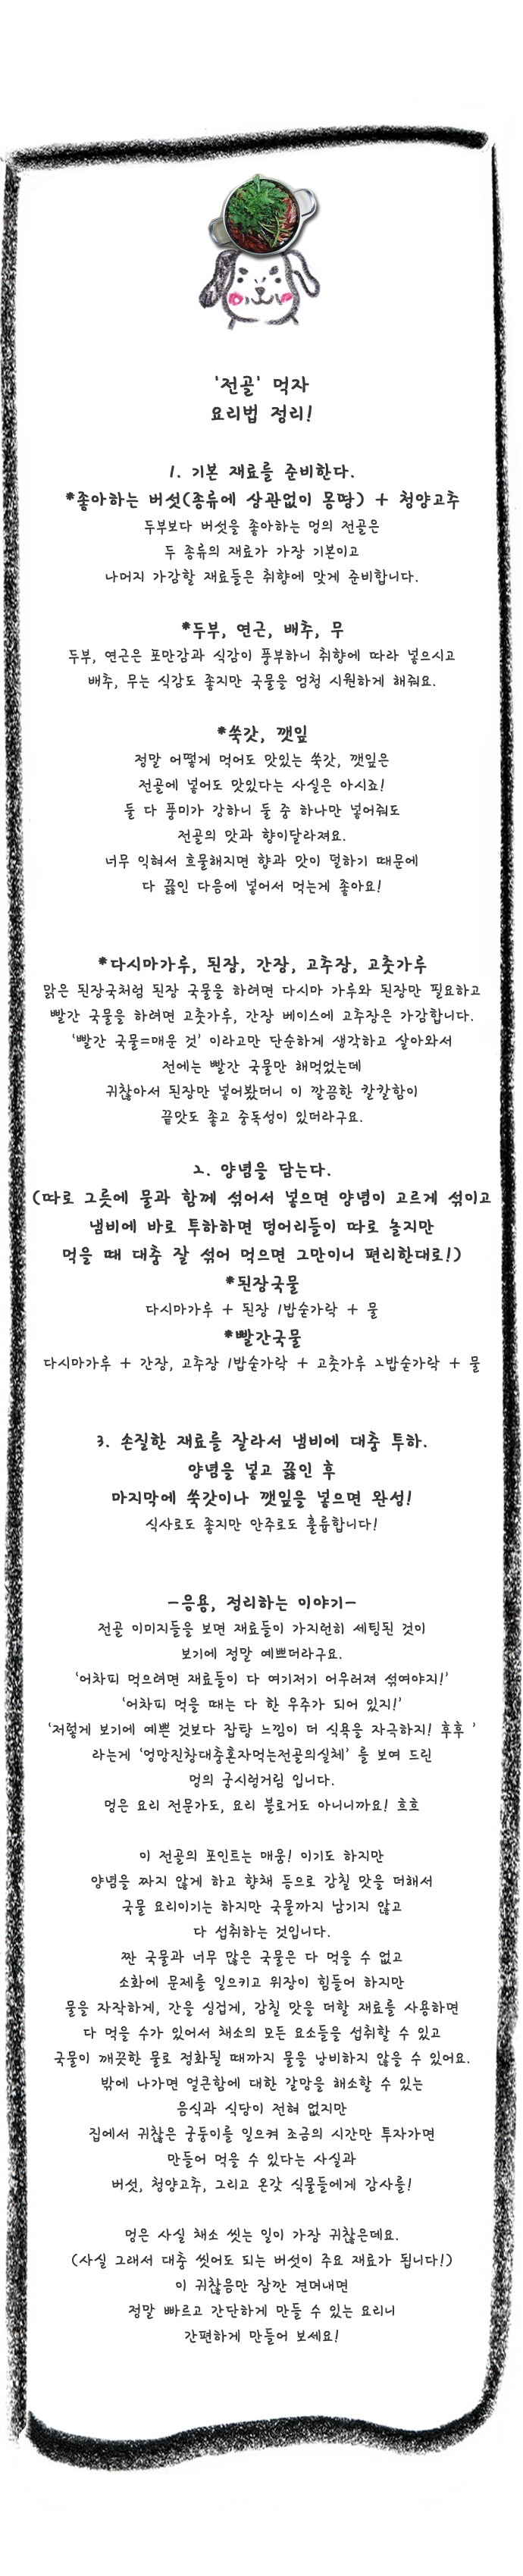 '전골' 먹자
요리법 정리!
1. 기본 재료를 준비한다.
*좋아하는 버섯(종류에 상관없이 몽땅) + 청양고추
두부보다 버섯을 좋아하는 멍의 전골은
두 종류의 재료가 가장 기본이고
나머지 가감할 재료들은 취향에 맞게 준비합니다.
*두부, 연근, 배추, 무
두부, 연근은 포만감과 식감이 풍부하니 취향에 따라 넣으시고
배추, 무는 식감도 좋지만 국물을 엄청 시원하게 해줘요.
*쑥갓, 깻잎
정말 어떻게 먹어도 맛있는 쑥갓, 깻잎은
전골에 넣어도 맛있다는 사실은 아시죠!
둘 다 풍미가 강하니 둘 중 하나만 넣어줘도
전골의 맛과 향이달라져요.
너무 익혀서 흐물해지면 향과 맛이 덜하기 때문에
다 끓인 다음에 넣어서 먹는게 좋아요!
*다시마가루, 된장, 간장, 고추장, 고춧가루
맑은 된장국처럼 된장 국물을 하려면 다시마 가루와 된장만 필요하고
빨간 국물을 하려면 고춧가루, 간장 베이스에 고추장은 가감합니다.
'빨간 국물=매운 것' 이라고만 단순하게 생각하고 살아와서
전에는 빨간 국물만 해먹었는데
귀찮아서 된장만 넣어봤더니 이 깔끔한 칼칼함이
끝맛도 좋고 중독성이 있더라구요.
2. 양념을 담는다.
(따로 그릇에 물과 함께 섞어서 넣으면 양념이 고르게 섞이고
냄비에 바로 투하하면 덩어리들이 따로 놀지만
먹을 때 대충 잘 섞어 먹으면 그만이니 편리한대로!)
*된장국물
다시마가루 + 된장 1밥숟가락 + 물
*빨간국물
다시마가루 + 간장, 고추장 1밥숟가락 + 고춧가루 2밥숟가락 + 물
3. 손질한 재료를 잘라서 냄비에 대충 투하.
양념을 넣고 끓인 후
마지막에 쑥갓이나 깻잎을 넣으면 완성!
식사로도 좋지만 안주로도 훌륭합니다!
-응용, 정리하는 이야기-
전골 이미지들을 보면 재료들이 가지런히 세팅된 것이
보기에 정말 예쁘더라구요.
'어차피 먹으려면 재료들이 다 여기저기 어우러져 섞여야지!'
'어차피 먹을 때는 다 한 우주가 되어 있지!'
'저렇게 보기에 예쁜 것보다 잡탕 느낌이 더 식욕을 자극하지! 후후 '
라는게 '엉망진창대충혼자먹는전골의실체' 를 보여 드린
멍의 궁시렁거림 입니다.
멍은 요리 전문가도, 요리 블로거도 아니니까요! 흐흐
이 전골의 포인트는 매움! 이기도 하지만
양념을 짜지 않게 하고 향채 등으로 감칠 맛을 더해서
국물 요리이기는 하지만 국물까지 남기지 않고
다 섭취하는 것입니다.
짠 국물과 너무 많은 국물은 다 먹을 수 없고
소화에 문제를 일으키고 위장이 힘들어 하지만
물을 자작하게, 간을 심겁게, 감칠 맛을 더할 재료를 사용하면
다 먹을 수가 있어서 채소의 모든 요소들을 섭취할 수 있고
국물이 깨끗한 물로 정화될 때까지 물을 낭비하지 않을 수 있어요.
밖에 나가면 얼큰함에 대한 갈망을 해소할 수 있는
음식과 식당이 전혀 없지만
집에서 귀찮은 궁둥이를 일으켜 조금의 시간만 투자가면
만들어 먹을 수 있다는 사실과
버섯, 청양고추, 그리고 온갖 식물들에게 감사를!
멍은 사실 채소 씻는 일이 가장 귀찮은데요.
(사실 그래서 대충 씻어도 되는 버섯이 주요 재료가 됩니다!)
이 귀찮음만 잠깐 견뎌내면
정말 빠르고 간단하게 만들 수 있는 요리니
간편하게 만들어 보세요!